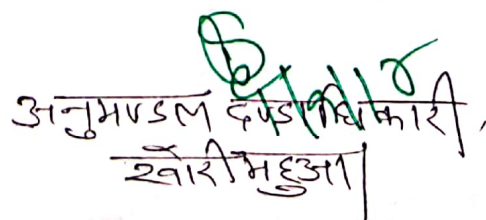 अनुमण्डल दण्डाधिकारी,
खोरीमहुआ